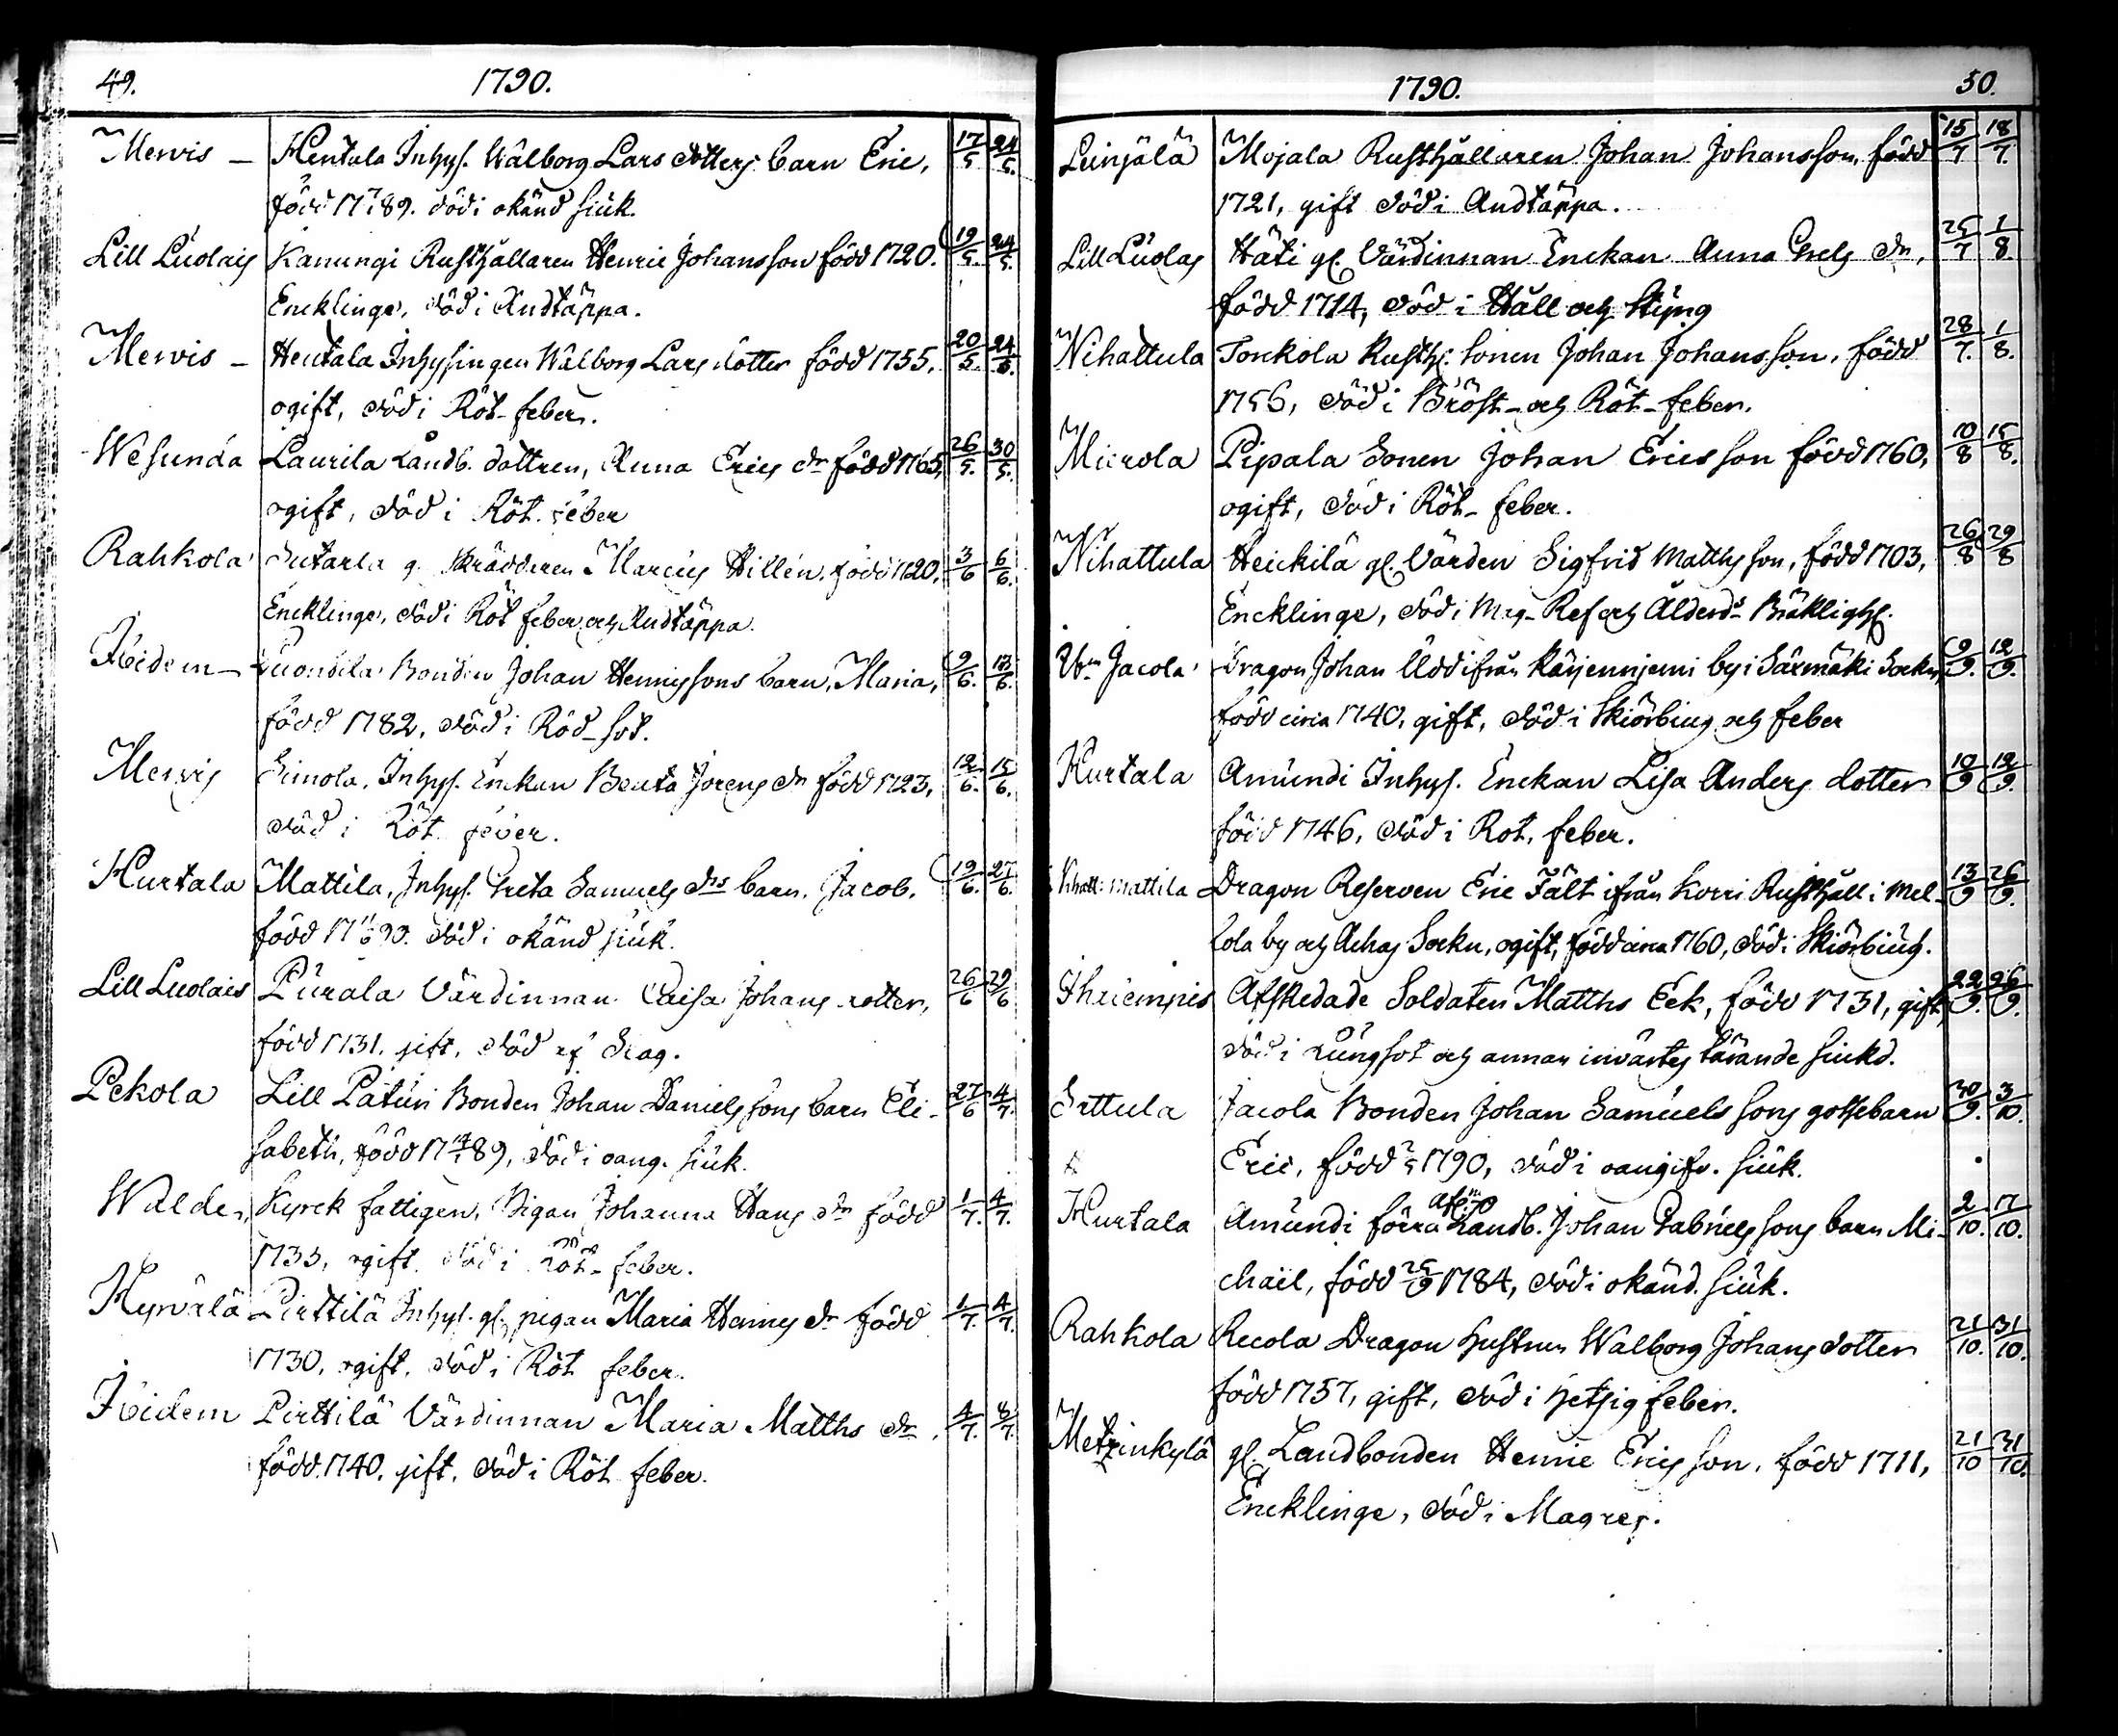 49. 1790.
Mervis – Hentala Inhys. Wålborg Lars dotters barn Eric, 17/5 24/5.
född 17 7/1 89. död i okänd siuk.
Lill Luolais Kanungi Rusthållaren Henric Johansson född 1720. 19/5. 24/5.
Encklinge, död i Andtäppa.
Mervis – Hentala Inhysingen Wålborg Lars dotter född 1755. 20/5. 24/5.
ogift, död i Röt-feber.
Wesunda Laurila Landb. dottren, Anna Erics dr född 1765, 26/5. 30/5.
ogift, död i Röt. feber
Rahkola Sutarla g. Skrädderen Marcus Hillén. född 1720, 3/6 6/6.
Encklinge, död i Röt feber och Andtäppa.
Ibidem – Luondila Bonden Johan Henrissons barn, Maria, 9/6. 13/6.
född 1782, död i Röd-sot.
Mervis Simola, Inhys. Enckan Beata Jörens dr född 1723, 12/6. 15/6.
död i Röt feber.
Hurtala Mattila, Inhys. Greta Samuels drs barn. Jacob. 19/6. 27/6.
född 17 11/6 90. död i okänd siuk.
Lill Luolais Purala Värdinnan Caisa Johans dotter, 26/6 29/6
född 1731. gift, död af Slag.
Pekola Lill Patúri Bonden Johan Danielssons barn Eli- 27/6 4/7.
sabeth, född 17 14/1 89, död i oang. siuk.
Walde, Kyrck fattigen, Pigan Johanna Hans dr född 1/7. 4/7.
1733, ogift. död i Röt-feber.
Hyrvälä Pirttilä Inhys. gl. pigan Maria Henrics dr född 1/7. 4/7.
1730, ogift, död i Röt feber.
Ibidem Pirttilä Värdinnan Maria Matths dr, 4/7. 8/7.
född 1740, gift, död i Röt feber.
1790. 50.
Leinjälä Mojala Rusthållaren Johan Johansson, född 15/7 18/7.
1721, gift död i Andtäppa.
Lill Luolas Häti gl. Värdinnan Enckan Anna Grels dr, 25/7 1/8.
född 1714, död i Håll och Styng
Nihattula Tonkola Rusth. Sonen Johan Johansson, född 28/7. 1/8.
1756, död i Bröst- och Röt-feber.
Mierola Pipala Sonen Johan Ericsson född 1760, 10/8 15/8.
ogift, död i Röt-feber.
Nihattula Heickilä gl. Värden Sigfrid Matthsson, född 1703, 26/8 29/8
Encklinge, död i Mag-Ref och Ålderds Bräklighet.
Jacola Dragon Johan Udd ifrån Kärjenniemi by i Säxmäki Sockn, 9/9. 12/9.
född circa 1740, gift, död i Skiörbiug och feber
Hurtala Amundi Inhys. Enckan Lisa Anders dotter 10/9 12/9.
född 1746, död i Röt, feber.
Nihatt: Mattila Dragon Reserven Eric Fält ifrån Korri Rusthåll i Mel- 13/9 26/9.
lola by och Achas Sockn, ogift, född circa 1760, död i Skiörbiug.
Ihriempis Afskedade Soldaten Matths Eek, född 1731, gift, 22/9. 26/9.
död i Lungsot och annan invärtes tärande siukd.
Erttula Jacola Bonden Johan Samuelssons gossebarn 30/9. 3/10.
Eric, född 2/5 1790, död i oangifv. siuk.
Hurtala Amundi förra Landb. Johan Gabrielssons barn Mi- 2/10. 17/10.
chail, född 25/9 1784, död i okänd. siuk.
Rahkola Recola Dragon hustrun Walborg Johans dotter 21/10. 31/10.
född 1757, gift, död i hetsig feber.
Metzinkylä gl. Landbonden Henric Ericsson, född 1711, 21/10 31/10.
Encklinge, död i Magref.